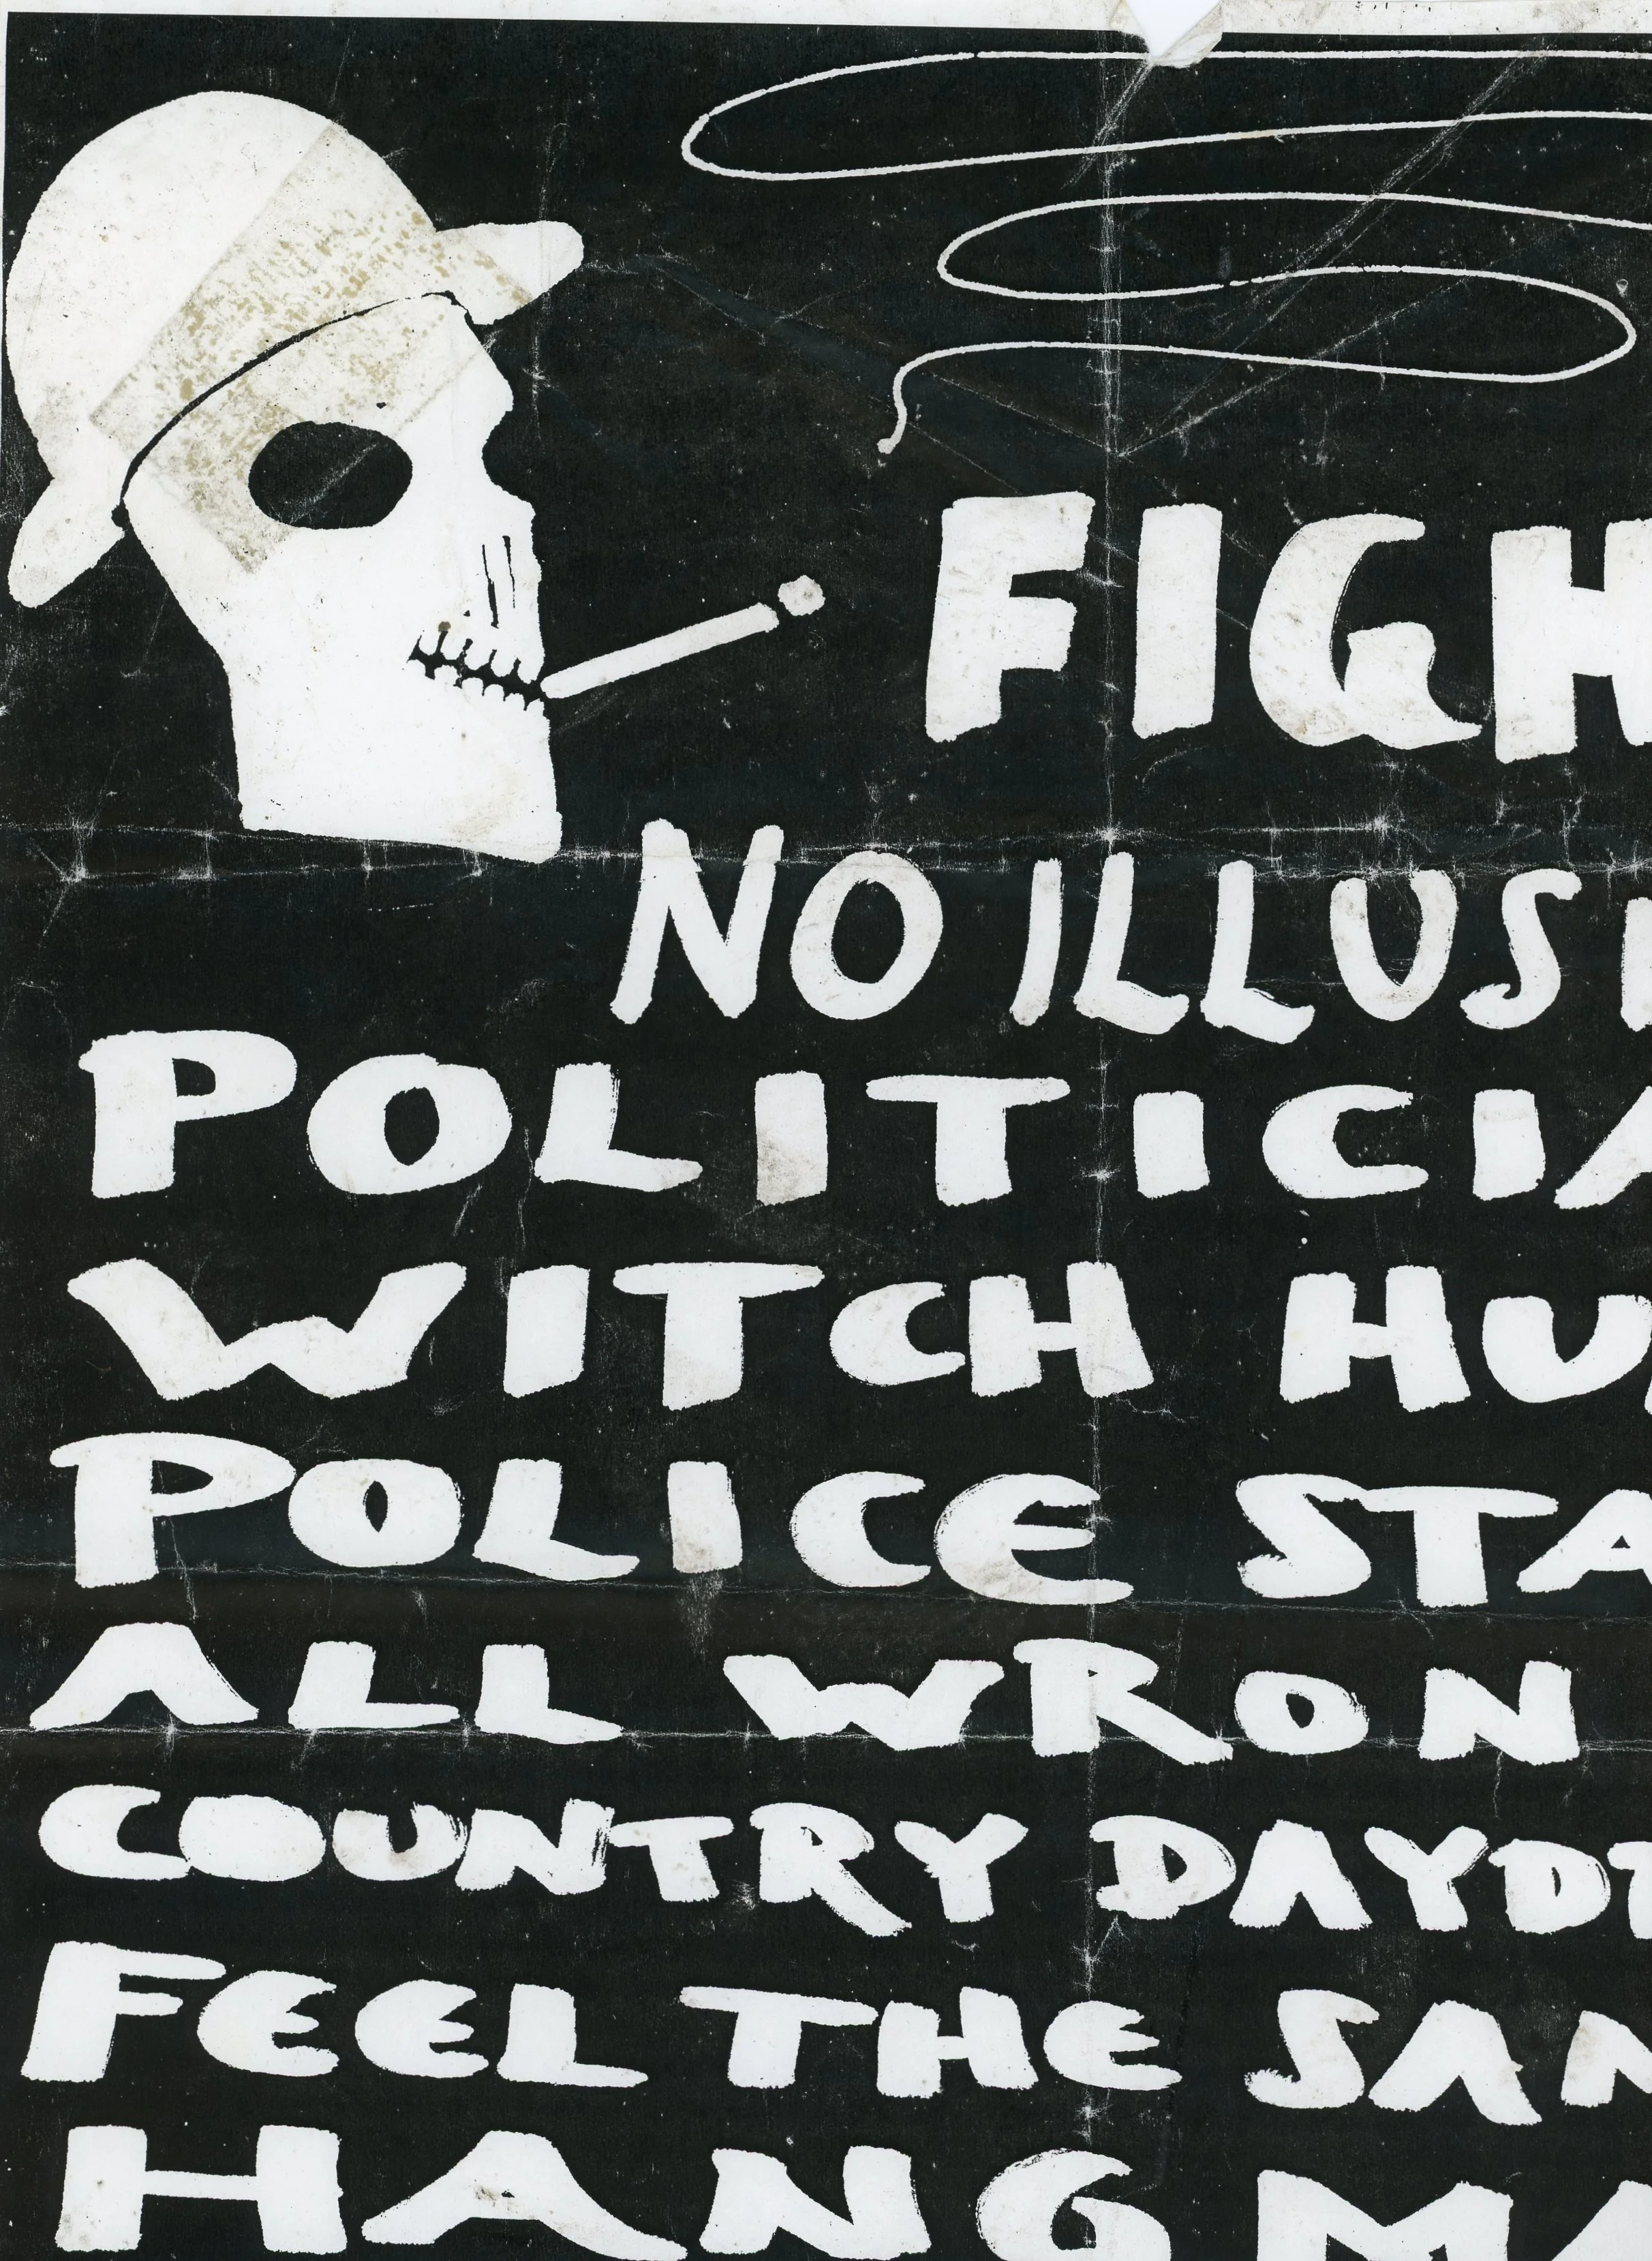 FIGH
NO ILLUSI
POLITICIA
WITCH HU
POLICE STA
ALL WRON
COUNTRY DAYD
FEEL THE SAM
HANG MA